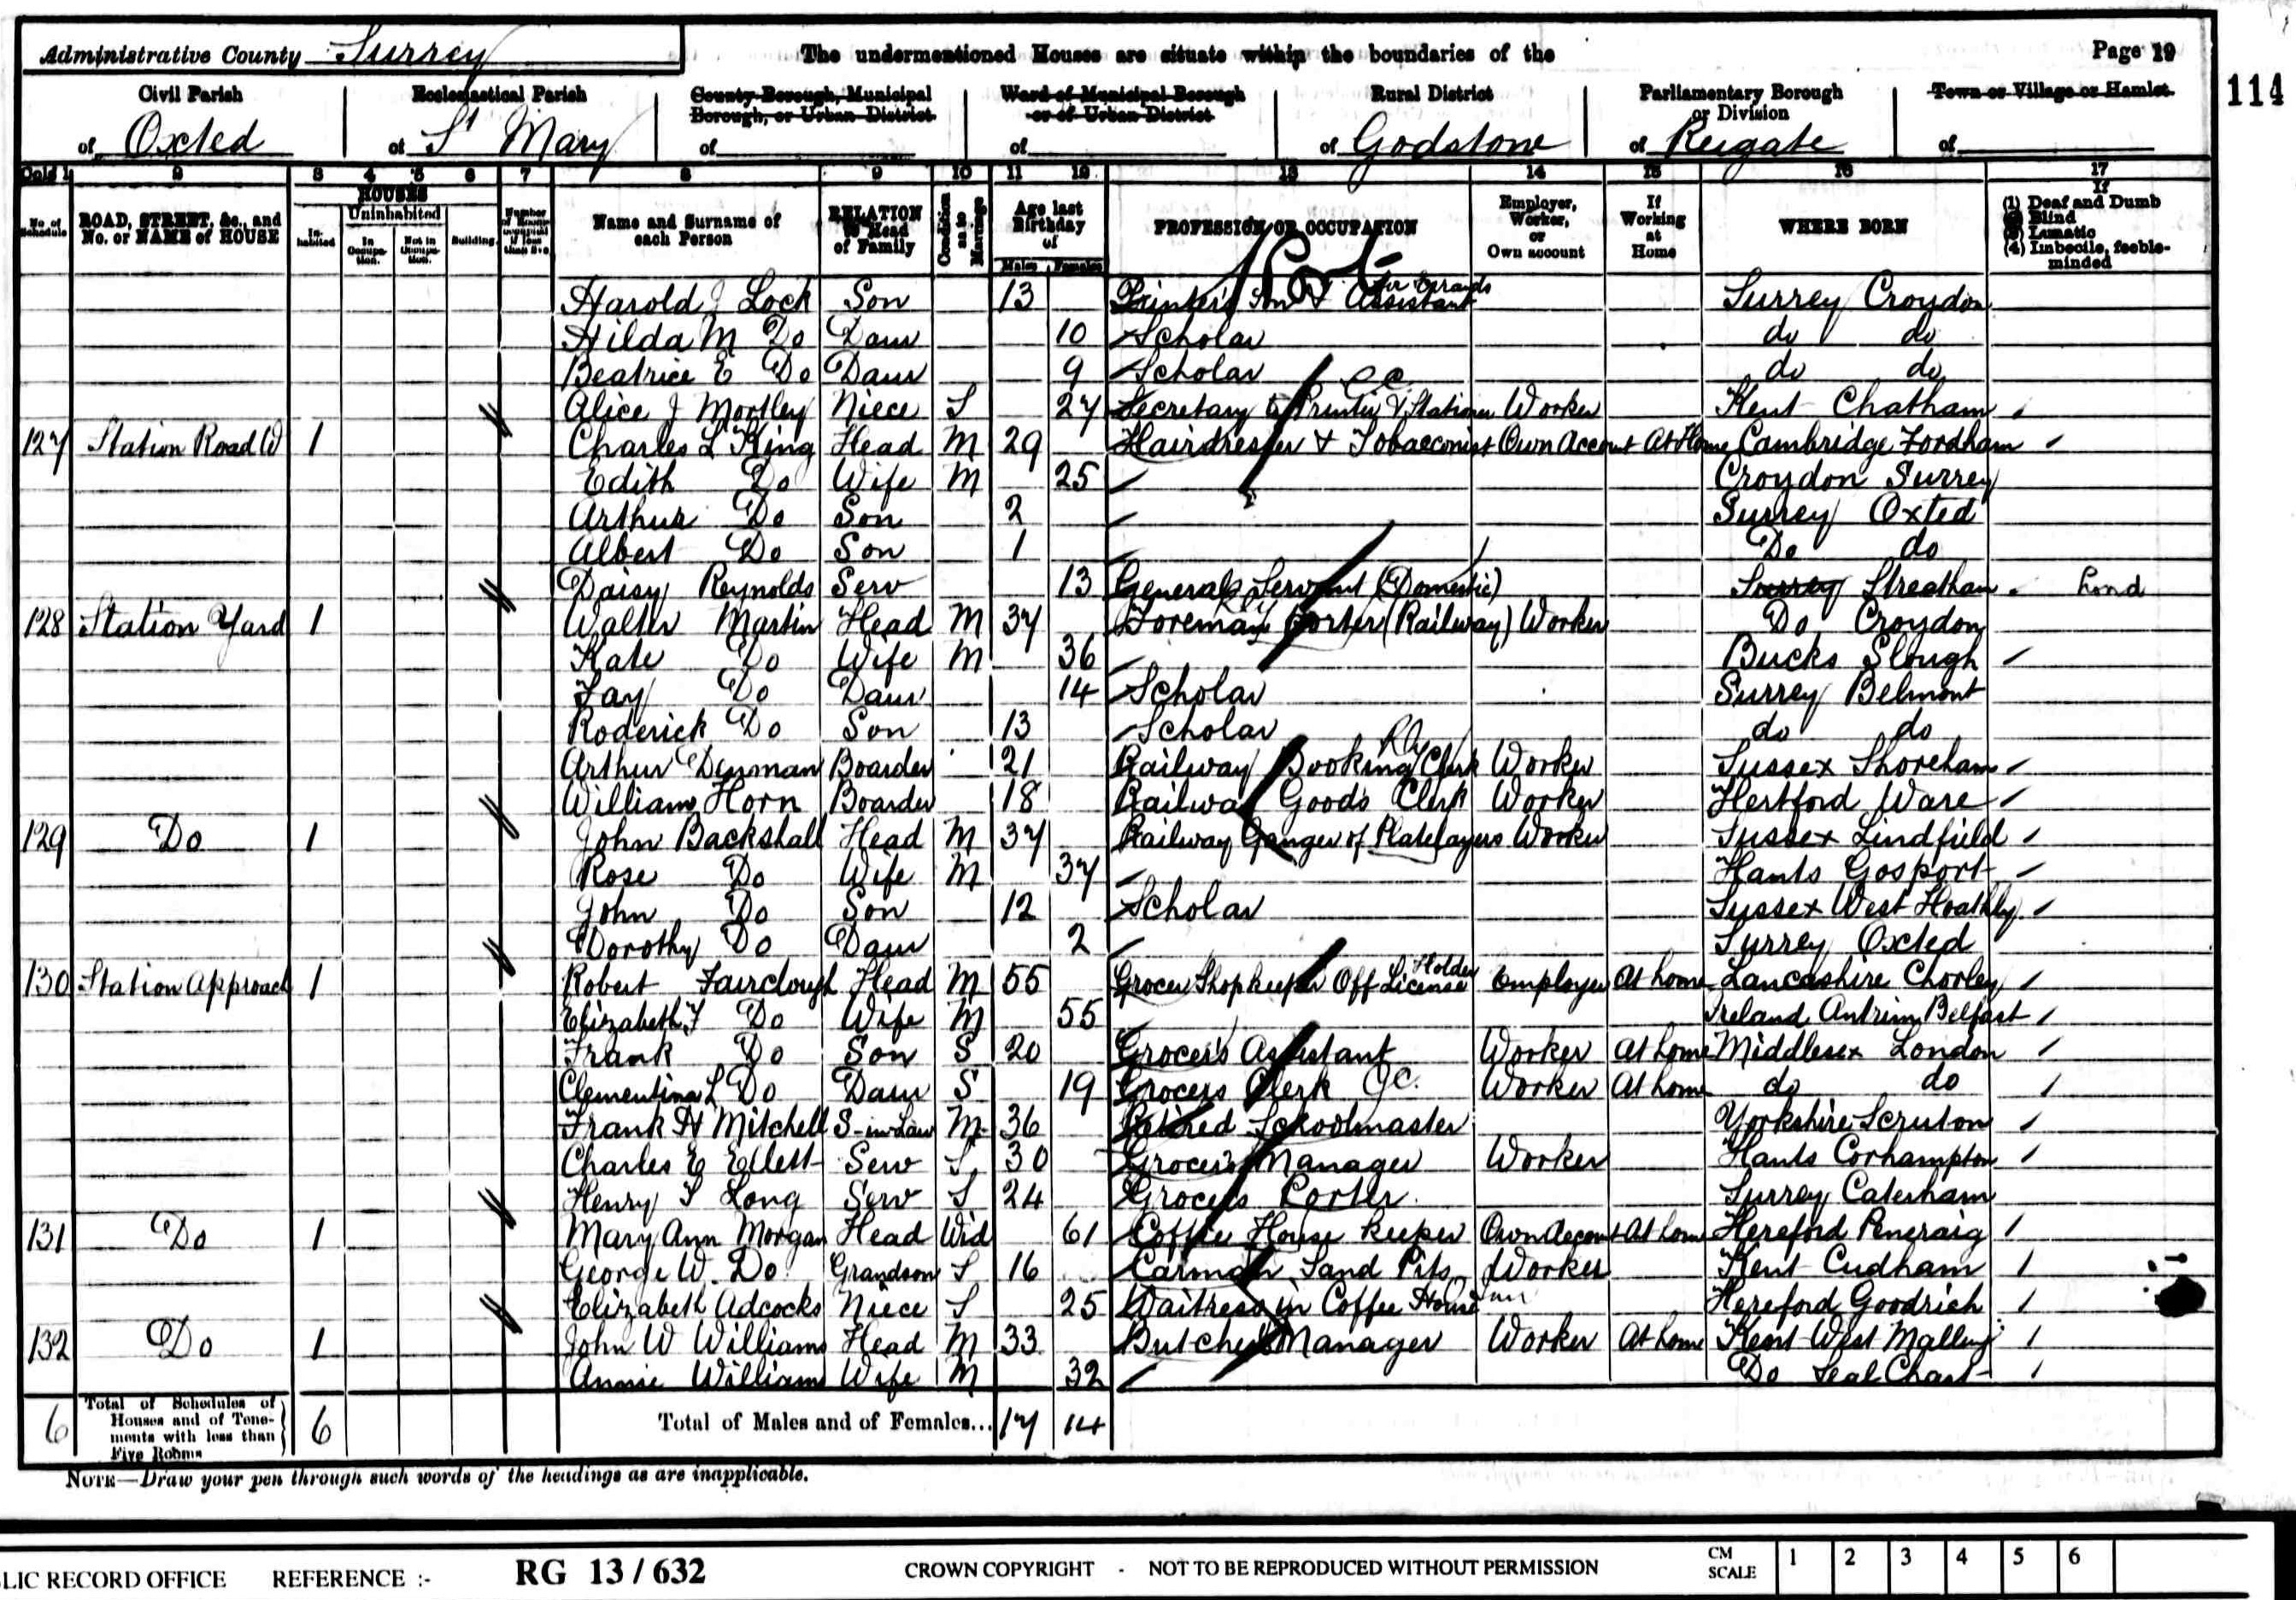 Administrative County Surrey The undermentioned Houses are situate within the boundaries of the Page 19
114
Civil Parish Ecclesiastical Parish County Borough, Municipal Borough, or Urban District Ward of Municipal Borough or of Urban District Rural District Parliamentary Borough or Division Town or Village or Hamlet
of Oxted of St Mary of of of Godstone of Reigate of
Cols 1 2 3 4 5 6 7 8 9 10 11 12 13 14 15 16 17
No. of Schedule ROAD, STREET, &c., and No. or NAME of HOUSE HOUSES Inhabited Uninhabited In Occupation. Not in Occupation. Building. Name and Surname of each Person RELATION to Head of Family Condition as to Marriage Age last Birthday of Males Females PROFESSION OR OCCUPATION Employer, Worker, or Own account If Working at Home WHERE BORN If (1) Deaf and Dumb (2) Blind (3) Lunatic (4) Imbecile, feeble-minded
Harold J Lock Son 13 Printer's Son & Assistant for Errands Surrey Croydon
Hilda M Do Daur 10 Scholar do do
Beatrice E Do Daur 9 Scholar do do
Alice J Mortley Niece S 27 Secretary to Printer & Stationer Worker Kent Chatham
127 Station Road W 1 Charles L King Head M 29 Hairdresser & Tobacconist Own Account At Home Cambridge Fordham
Edith Do Wife M 25 Croydon Surrey
Arthur Do Son 2 Surrey Oxted
Albert Do Son 1 Do do
Daisy Reynolds Serv 13 General Servant (Domestic) Surrey Streatham Lond
128 Station Yard 1 Walter Martin Head M 37 Foreman Porter (Railway) Worker Do Croydon
Kate Do Wife M 36 Bucks Slough
Fay Do Daur 14 Scholar Surrey Belmont
Roderick Do Son 13 Scholar do do
Arthur Denman Boarder 21 Railway Booking Clerk Worker Sussex Shoreham
William Horn Boarder 18 Railway Goods Clerk Worker Hertford Ware
129 Do 1 John Backshall Head M 37 Railway Ganger of Platelayers Worker Sussex Lindfield
Rose Do Wife M 37 Hants Gosport
John Do Son 12 Scholar Sussex West Hoathly
Dorothy Do Daur 2 Surrey Oxted
130 Station Approach 1 Robert Fairclough Head M 55 Grocer Shopkeeper Off License Holder Employer At home Lancashire Chorley
Elizabeth F Do Wife M 55 Ireland Antrim Belfast
Frank Do Son S 20 Grocer's Assistant Worker At home Middlesex London
Clementina L Do Daur S 19 Grocers Clerk Worker At home do do
Frank H Mitchell S-in-Law M 36 Retired Schoolmaster Yorkshire Scruton
Charles E Ellett Serv S 30 Grocer's Manager Worker Hants Corhampton
Henry T Long Serv S 24 Grocers Porter Surrey Caterham
131 Do 1 Mary Ann Morgan Head Wid 61 Coffee House keeper Own Account At home Hereford Pencraig
George W. Do Grandson S 16 Carman Sand Pits Worker Kent Cudham
Elizabeth Adcocks Niece S 25 Waitress in Coffee House Hereford Goodrich
132 Do 1 John W Williams Head M 33 Butcher's Manager Worker At home Kent West Malling
Annie Williams Wife M 32 Do Seal Chart
6 Total of Schedules of Houses and of Tenements with less than Five Rooms 6 Total of Males and of Females... 17 14
NOTE—Draw your pen through such words of the headings as are inapplicable.
LIC RECORD OFFICE REFERENCE :- RG 13/632 CROWN COPYRIGHT - NOT TO BE REPRODUCED WITHOUT PERMISSION CM SCALE 1 2 3 4 5 6